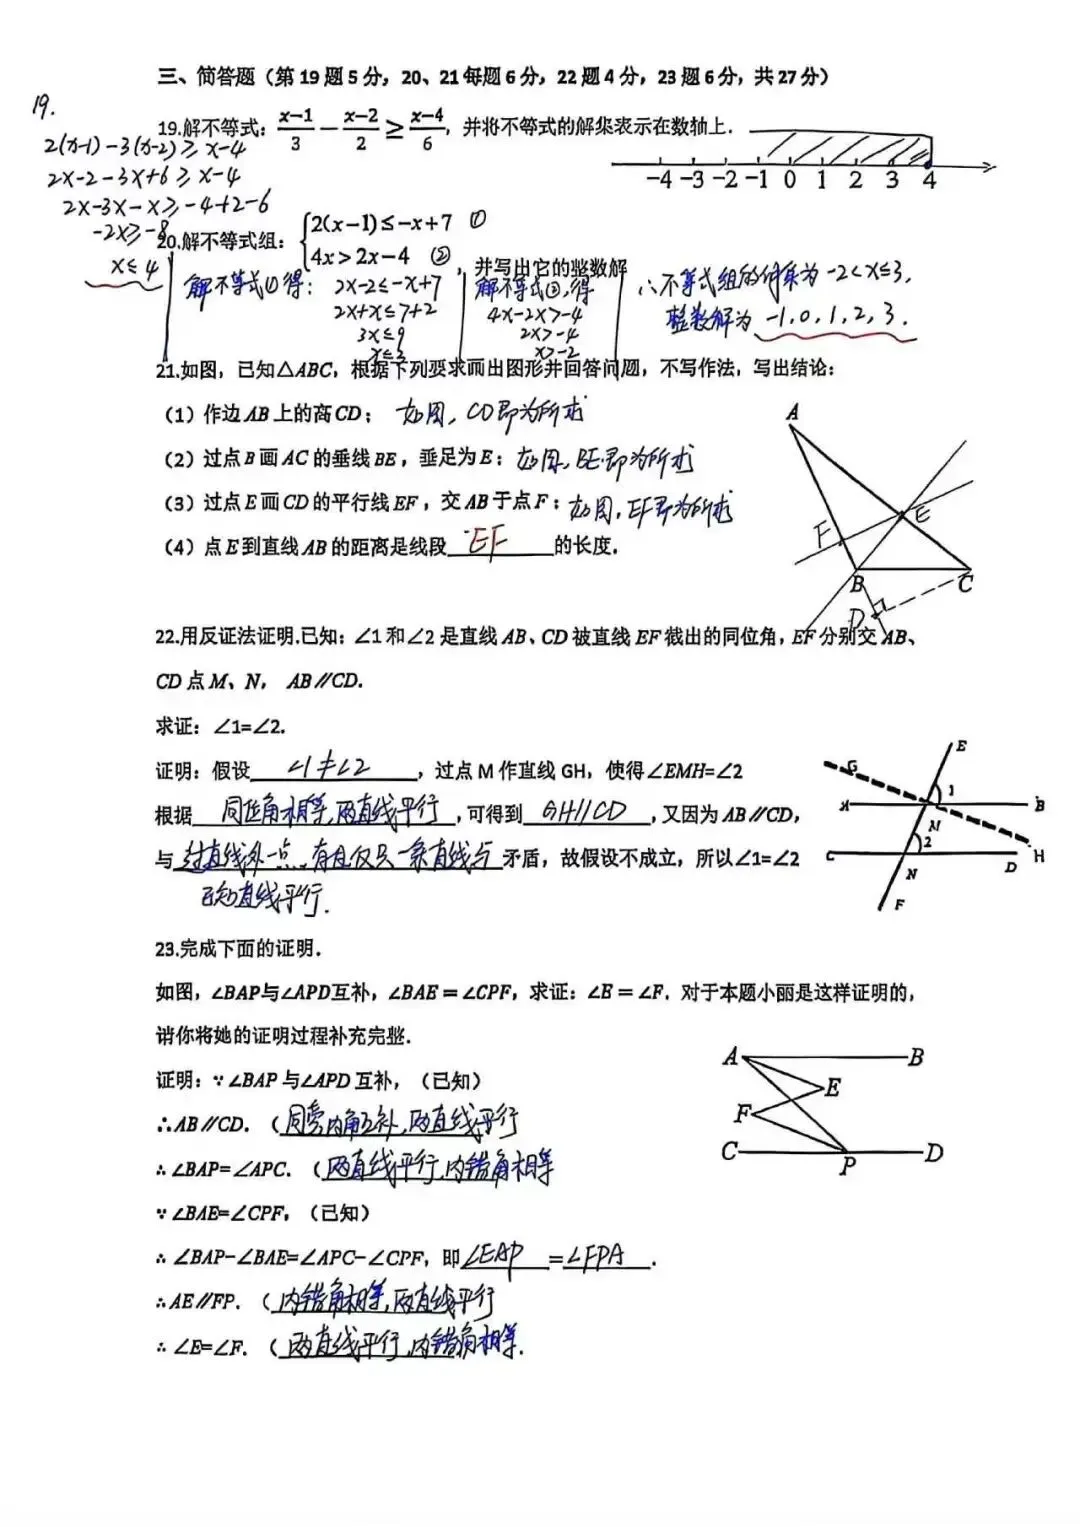 三、简答题（第 19 题 5 分，20、21 每题 6 分，22 题 4 分，23 题 6 分，共 27 分）
19.
19.解不等式：(x−1)/3 − (x−2)/2 ≥ (x−4)/6，并将不等式的解集表示在数轴上．
2(x-1)-3(x-2)≥x-4
2x-2-3x+6≥x-4
2x-3x-x≥-4+2-6
-2x≥-8
x≤4
-4 -3 -2 -1 0 1 2 3 4
20.解不等式组：{2(x−1)≤−x+7 ①
4x>2x−4 ②，并写出它的整数解
解不等式①得：2x-2≤-x+7
2x+x≤7+2
3x≤9
x≤3
解不等式②,得
4x-2x>-4
2x>-4
x>-2
∴不等式组的解集为 -2<x≤3,
整数解为 -1,0,1,2,3.
21.如图，已知△ABC，根据下列要求画出图形并回答问题，不写作法，写出结论：
（1）作边 AB 上的高 CD；如图，CD即为所求
（2）过点 B 画 AC 的垂线 BE，垂足为 E；如图，BE即为所求
（3）过点 E 画 CD 的平行线 EF，交 AB 于点 F；如图，EF即为所求
（4）点 E 到直线 AB 的距离是线段 EF 的长度．
A
E
F
B
C
D
22.用反证法证明.已知：∠1 和∠2 是直线 AB、CD 被直线 EF 截出的同位角，EF 分别交 AB、
CD 点 M、N， AB∥CD.
求证：∠1=∠2.
证明：假设 ∠1≠∠2 ，过点 M 作直线 GH，使得∠EMH=∠2
根据 同位角相等,两直线平行 ，可得到 GH//CD ，又因为 AB∥CD，
与 过直线外一点,有且仅只一条直线与 矛盾，故假设不成立，所以∠1=∠2
已知直线平行.
E
G
1
A
B
M
2
C
D
H
N
F
23.完成下面的证明．
如图，∠BAP与∠APD互补，∠BAE＝∠CPF，求证：∠E＝∠F．对于本题小丽是这样证明的，
请你将她的证明过程补充完整.
证明：∵∠BAP 与∠APD 互补，（已知）
∴AB∥CD.（同旁内角互补,两直线平行
∴∠BAP=∠APC.（两直线平行,内错角相等
∵∠BAE=∠CPF，（已知）
∴∠BAP−∠BAE=∠APC−∠CPF，即∠EAP=∠FPA．
∴AE∥FP.（内错角相等,两直线平行
∴∠E=∠F.（两直线平行,内错角相等.
A
B
E
F
C
P
D